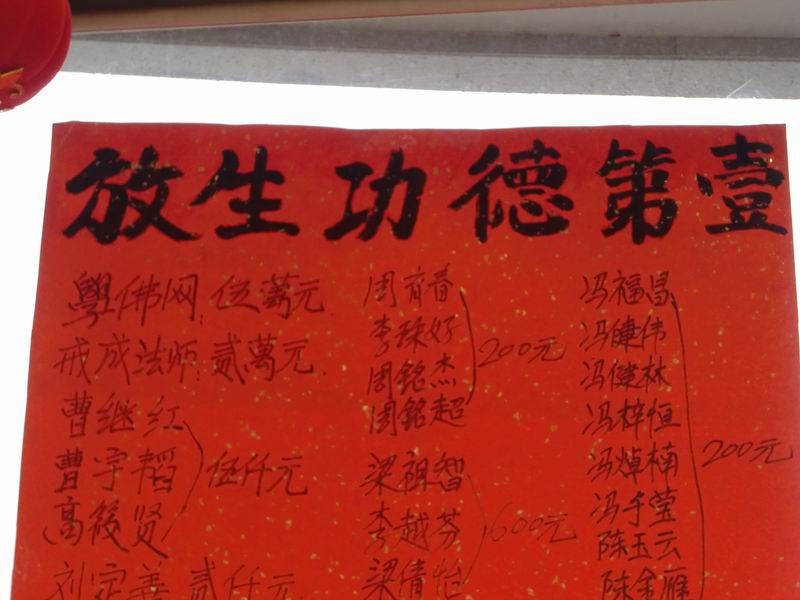 放生功德第壹
學佛网:伍萬元
戒成法师:贰萬元
曹继红
曹宇韬
高筱贤
伍仟元
刘定善 贰仟元
周育春
李球好
周銘杰
周銘超
200元
梁祖智
李越芬
梁倩怡
600元
冯福昌
冯健伟
冯健林
冯梓恒
冯焯楠
冯千莹
陈玉云
陈金雁
200元